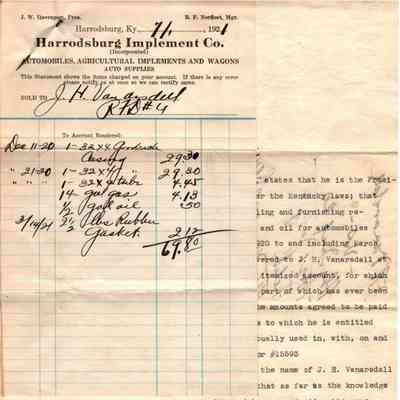 J. W. Ison, Pres. R. F. Norfleet, Mgr.
Harrodsburg, Ky. 7/1, 1921
Harrodsburg Implement Co.
(Incorporated)
AUTOMOBILES, AGRICULTURAL IMPLEMENTS AND WAGONS
AUTO SUPPLIES
This Statement shows the items charged on your account. If there is any error
please notify us at once so we can rectify same.
SOLD TO J. H. Vanarsdell
RFD #4
To Account Rendered:
Dec 11-20 1- 32x4 Goodrich
Casing 29.30
" 21-20 1- 32x4 " 29.30
" " " 1- 32x4 tube 4.45
14 gal gas 4.13
1/2 gal oil .50
3/14/21 2 1/2 lbs Rubber
Gasket 2.12
69.80
states that he is the Presi-
er the Kentucky laws; that
ling and furnishing re-
and oil for automobiles
920 to and including March
ered to J. H. Vanarsdall at
itemized account, for which
part of which has ever been
he amounts agreed to be paid
s to which he is entitled
ually used in, with, on and
or #15593
the name of J. H. Vanarsdall
that as far as the knowledge